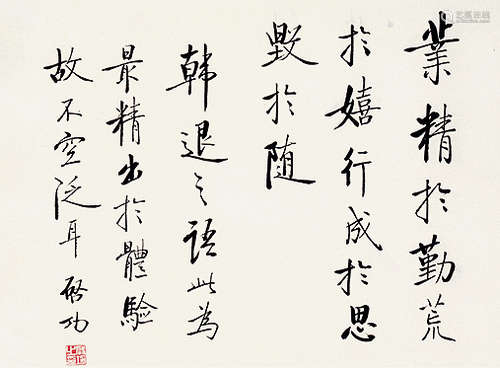 業精於勤荒
於嬉行成於思
毀於随
韓退之語此為
最精出於體驗
故不空泛耳 啓功